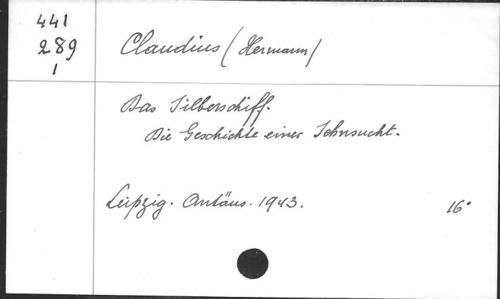 441
289
1
Claudius (Hermann)
Das Silberschiff.
Die Geschichte einer Sehnsucht.
Leipzig. Antäus. 1943.
16°